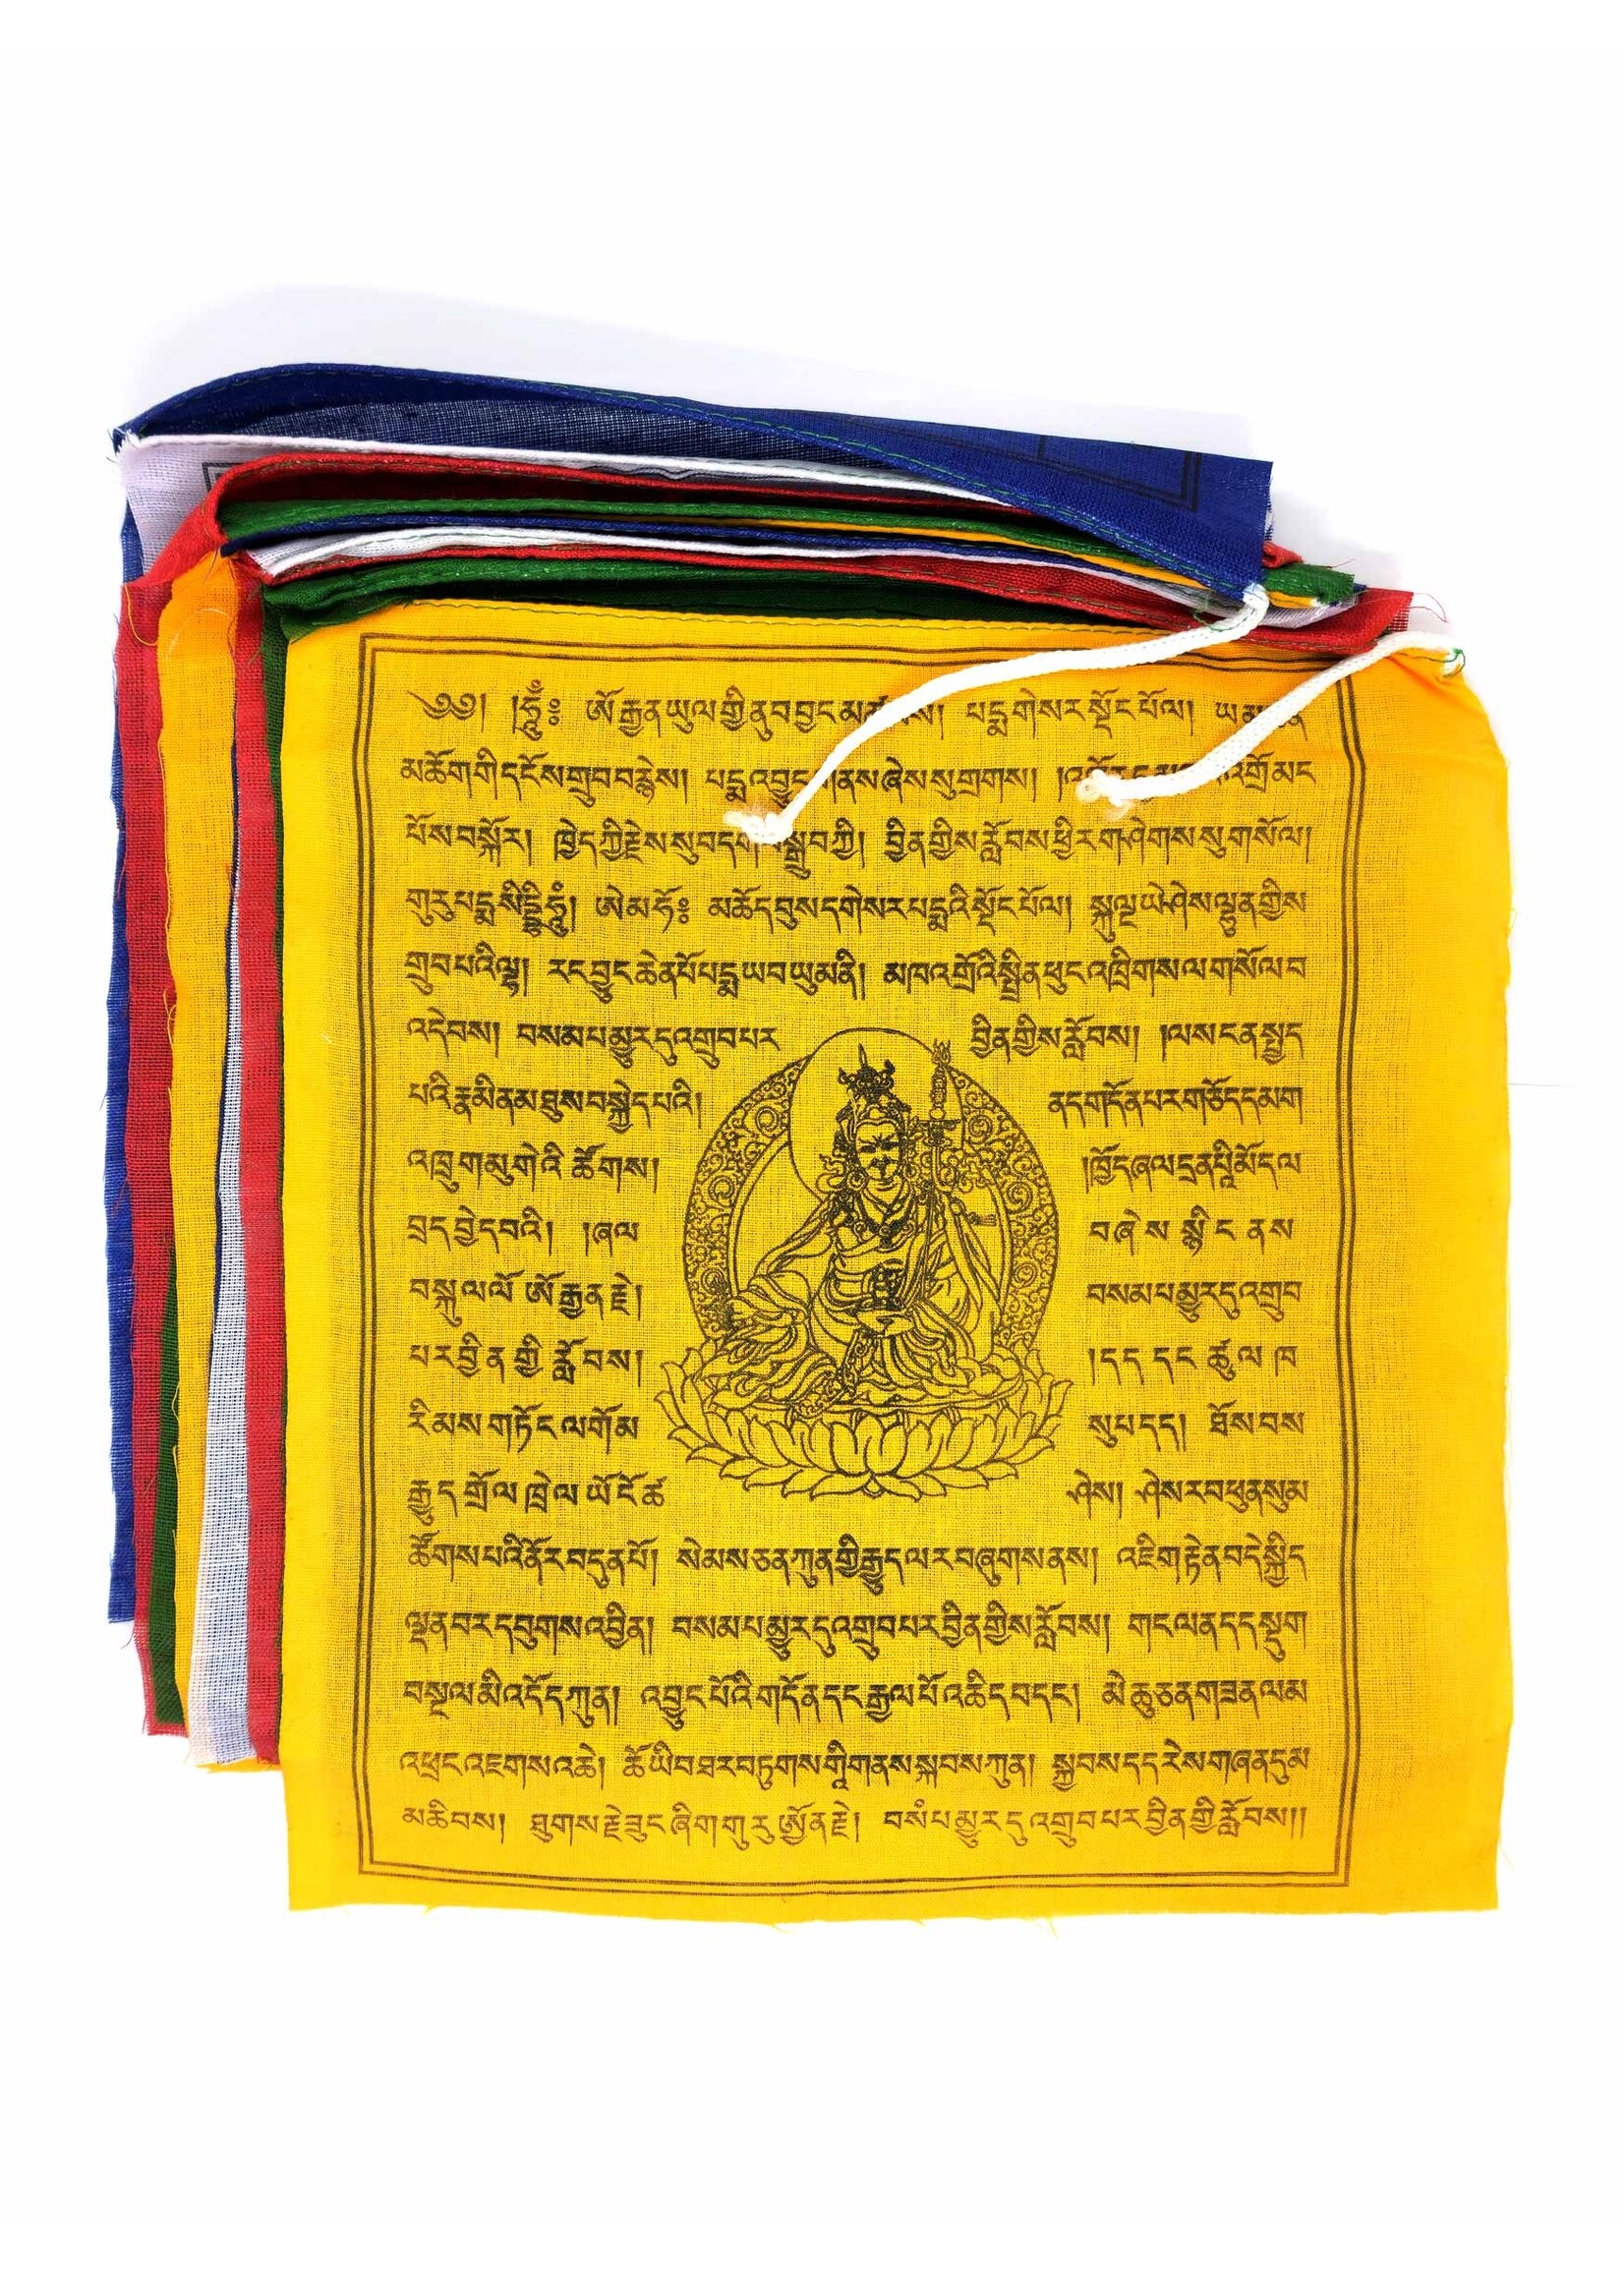 ༄༅། །ཧཱུྃ༔ ཨོ་རྒྱན་ཡུལ་གྱི་ནུབ་བྱང་མཚམས། པདྨ་གེ་སར་སྡོང་པོ་ལ།
མཆོག་གི་དངོས་གྲུབ་བརྙེས། པདྨ་འབྱུང་གནས་ཞེས་སུ་གྲགས། འཁོར་དུ་མཁའ་འགྲོ་མང
པོས་བསྐོར། ཁྱེད་ཀྱི་རྗེས་སུ་བདག་བསྒྲུབ་ཀྱི། བྱིན་གྱིས་རློབས་ཕྱིར་གཤེགས་སུ་གསོལ།
གུ་རུ་པདྨ་སིདྡྷི་ཧཱུྃ། ཨེ་མ་ཧོ༔ མཚོ་དབུས་དགེ་སར་པདྨའི་སྡོང་པོ་ལ། སྐུ་ལྔ་ཡེ་ཤེས་ལྷུན་གྱིས
གྲུབ་པའི་ལྷ། རང་བྱུང་ཆེན་པོ་པདྨ་ཡབ་ཡུམ་ནི། མཁའ་འགྲོའི་སྤྲིན་ཕུང་འཁྲིགས་ལ་གསོལ་བ
འདེབས། བསམ་པ་མྱུར་དུ་འགྲུབ་པར བྱིན་གྱིས་རློབས། །ལས་ངན་སྤྱད
པའི་རྣམ་སྨིན་མཐུས་བསྐྱེད་པའི། ནད་གདོན་བར་གཅོད་དམག
འཁྲུག་མུ་གེའི་ཚོགས། །ཁྱོད་ཞལ་དྲན་པའི་མོད་ལ
བྲད་བྱེད་པའི། །ཞལ བཞེས་སྙིང་ནས
བསྐུལ་ལོ་ཨོ་རྒྱན་རྗེ། བསམ་པ་མྱུར་དུ་འགྲུབ
པར་བྱིན་གྱི་རློབས། །དད་དང་ཚུལ་ཁ
རིམས་གཏོང་ལ་གོམ སུ་པ་དད། ཐོས་བས
རྒྱུད་གྲོལ་ཁྲེལ་ཡོད་ངོ་ཚ ཤེས། ཤེས་རབ་ཕུན་སུམ
ཚོགས་པའི་ནོར་བདུན་པོ། སེམས་ཅན་ཀུན་གྱི་རྒྱུད་ལ་རབ་ཞུགས་ནས། འཇིག་རྟེན་བདེ་སྐྱིད
ལྡན་བར་དབུགས་འབྱིན། བསམ་པ་མྱུར་དུ་འགྲུབ་པར་བྱིན་གྱིས་རློབས། གང་ལ་ནད་དང་སྡུག
བསྔལ་མི་འདོད་ཀུན། འབྱུང་པོའི་གདོན་དང་རྒྱལ་པོ་འཆིད་བདང། མེ་ཆུ་ཅན་གཟན་ལམ
འཕྲང་འཇིགས་འཆེ། ཚོ་ཡི་བ་ཐར་བཏུགས་ཀྱི་གནས་སྐབས་ཀུན། སྐྱབས་དང་རེ་ས་གཞན་དུ་མ
མཆིབས། ཐུགས་རྗེ་ཟུང་ཞིག་གུ་རུ་ཨྱོན་རྗེ། བསཾ་པ་མྱུར་དུ་འགྲུབ་པར་བྱིན་གྱི་རློབས།།